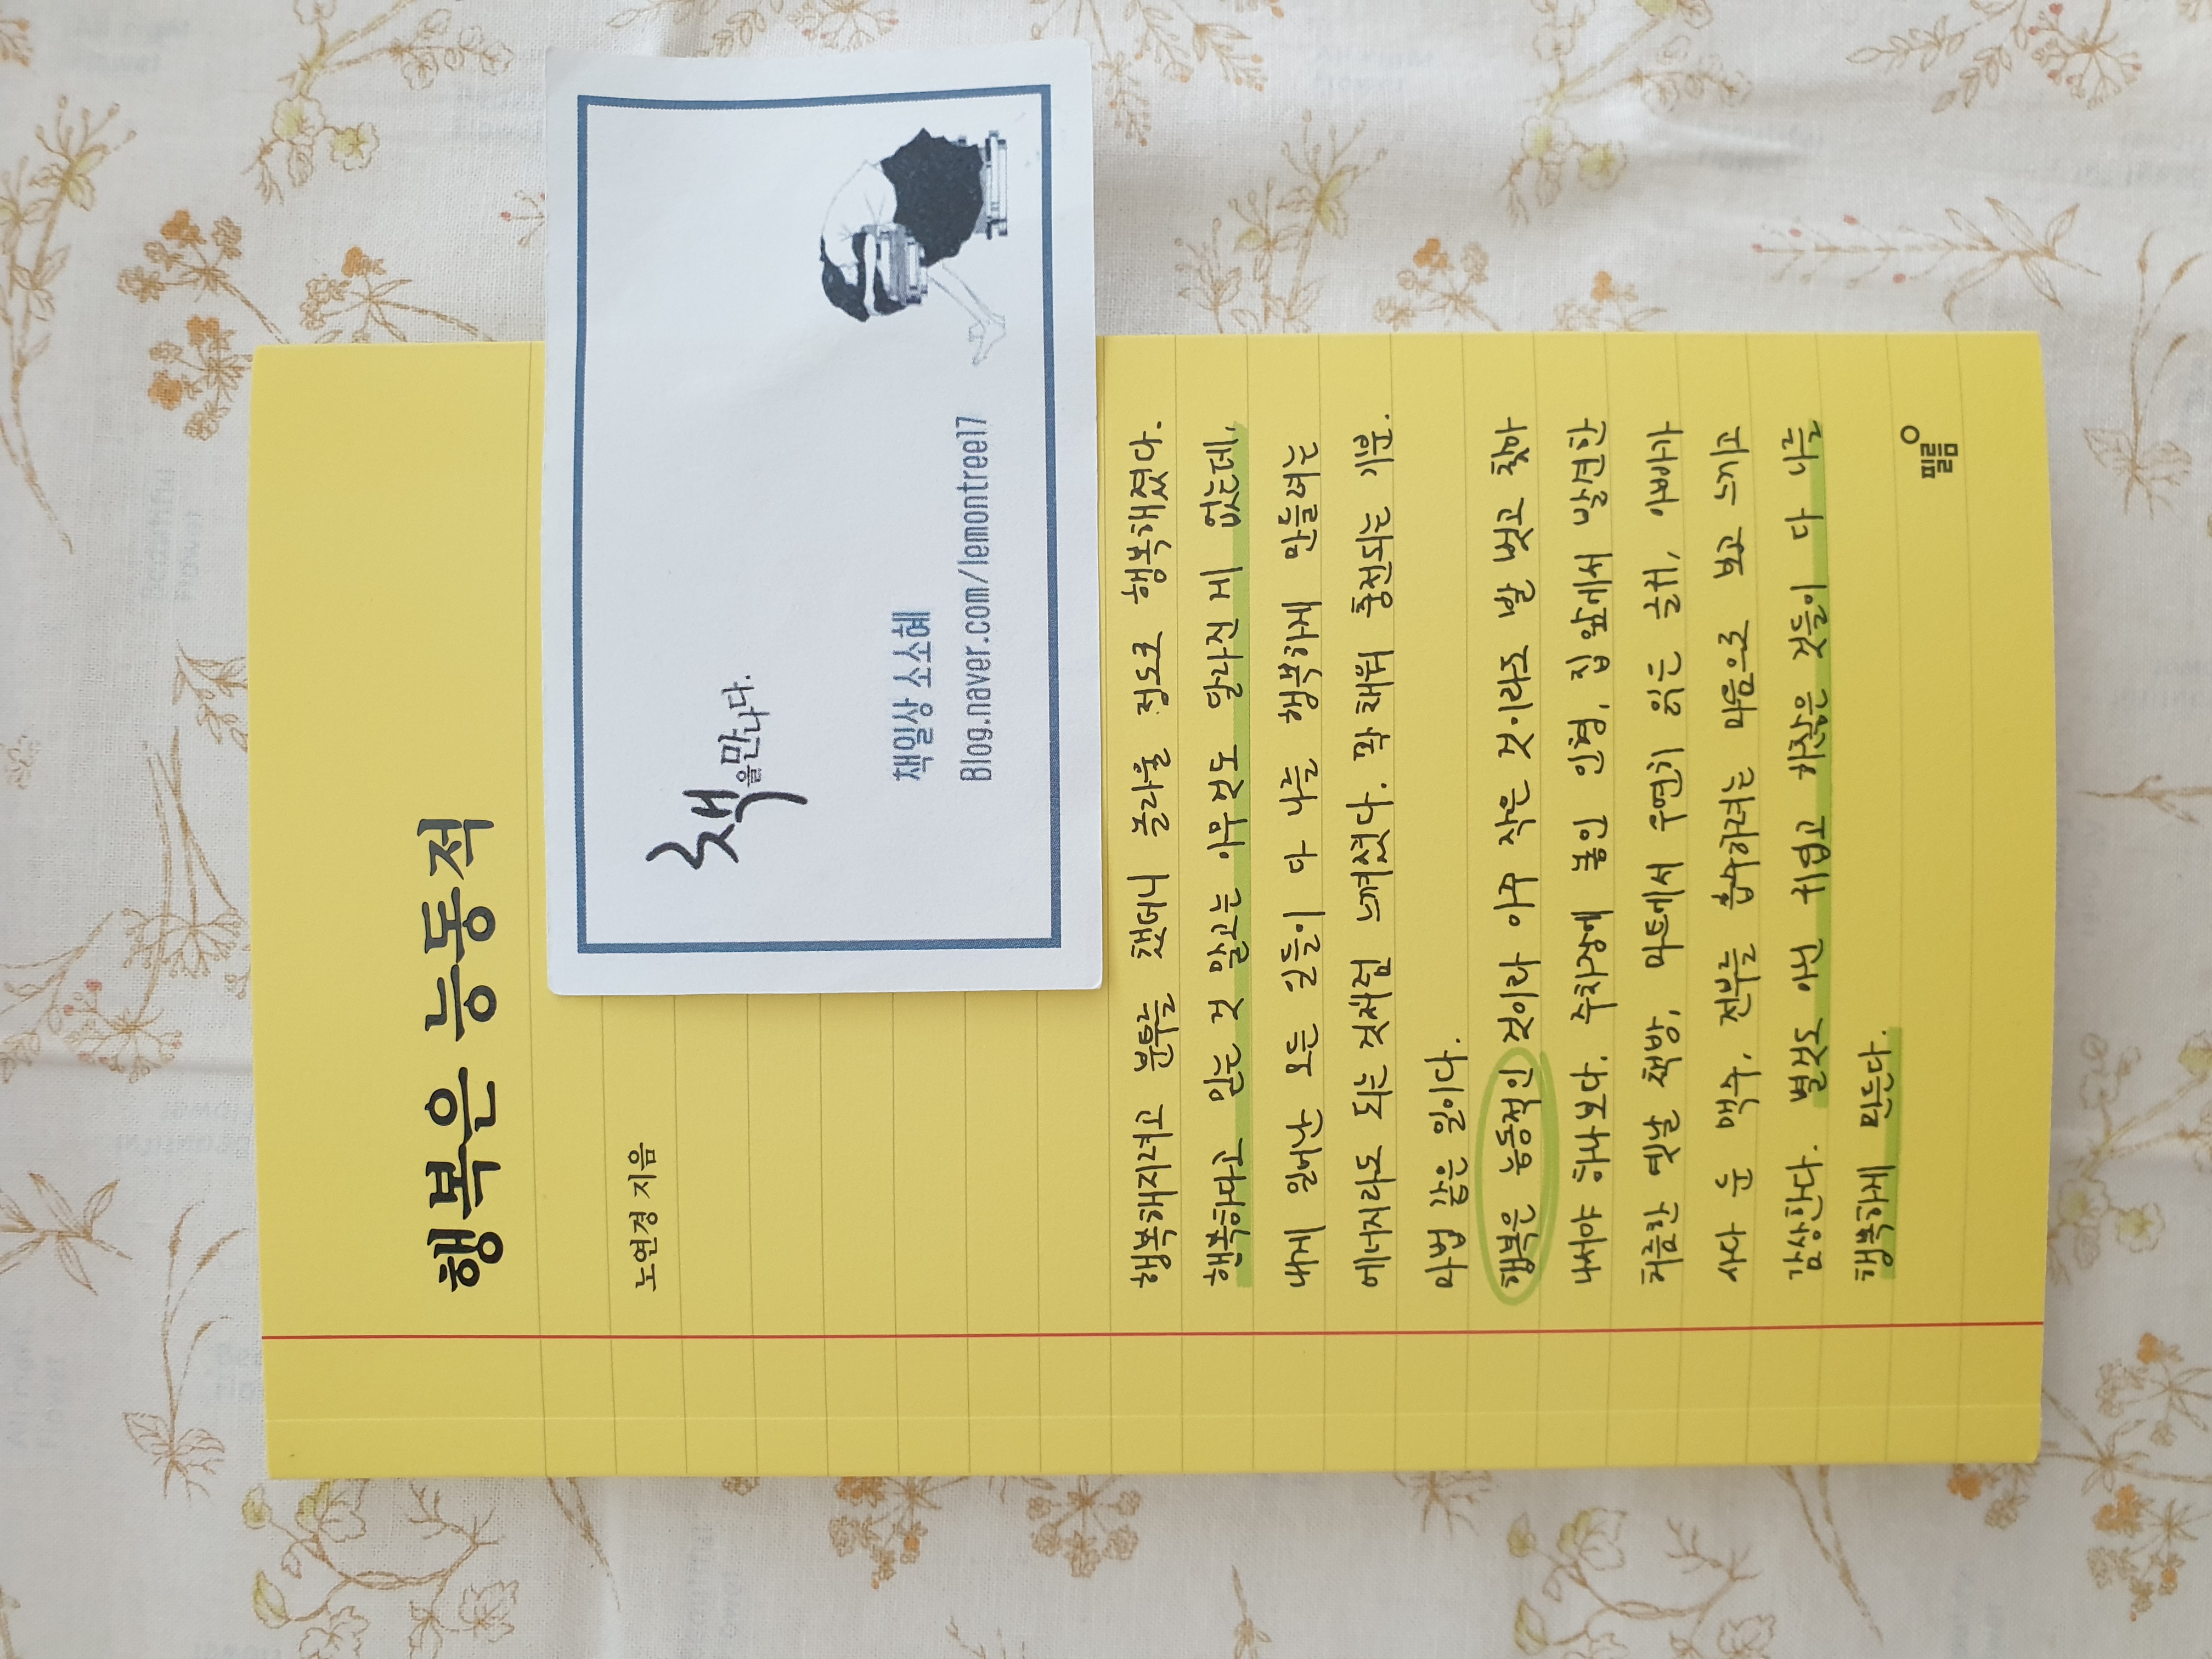 행복은 능동적
노연경 지음
책을만나다.
책일상 소소혜
Blog.naver.com/lemontree17
행복해지려고 분투를 했더니 놀라울 정도로 행복해졌다.
행복하다고 믿는 것 말고는 아무것도 달라진 게 없는데,
내게 일어난 모든 일들이 다 나를 행복하게 만들려는
에너지라도 되는 것처럼 느껴졌다. 꽉 채워 충전되는 기분.
마법 같은 일이다.
행복은 능동적인 것이라 아주 작은 것이라도 발 벗고 찾아
나서야 하나보다. 주차장에 놓인 인형, 집 앞에서 발견한
허름한 옛날 책방, 마트에서 우연히 읽은 글귀, 아빠가
사다 둔 맥주, 전부를 흡수하려는 마음으로 보고 느끼고
감상한다. 별것도 아닌 귀엽고 하찮은 것들이 다 나를
행복하게 만든다.
필름